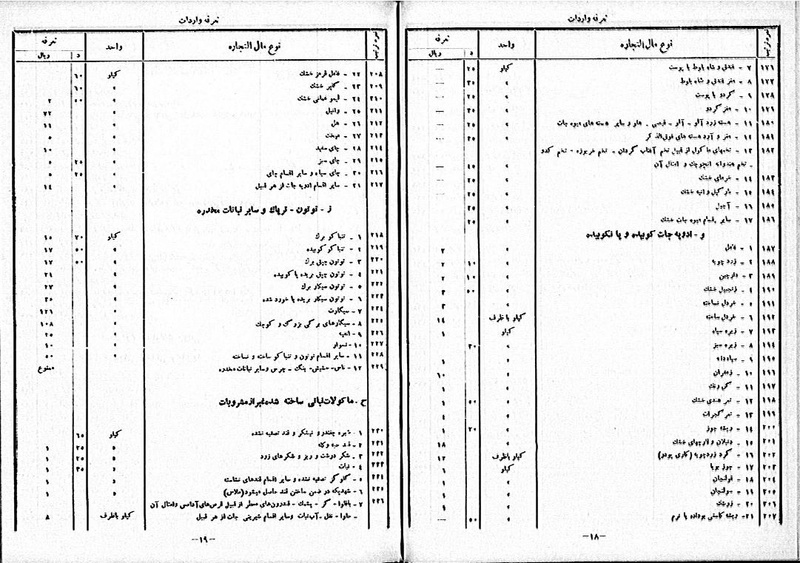 تعرفه واردات
نمره ترتیب
نوع مال التجاره
واحد
تعرفه
ریال
د
۷ - فندق و شاه بلوط با پوست کیلو ۲۵ —
۸ - مغز فندق و شاه بلوط » ۳۵ —
۱۷۸ ۹ - گردو با پوست » ۲۵ —
۱۷۹ ۱۰ - مغز گردو » ۳۵ —
۱۸۰ ۱۱ - هسته زرد آلو - آلو - قیسی - هلو و سایر هسته های میوه جات » ۲۵ —
۱۸۱ ۱۲ - مغز و آرد هسته های فوق الذکر » ۳۵ —
۱۸۲ ۱۳ - تخمهای ماکول از قبیل تخم آفتاب گردان - تخم خربوزه - تخم کدو
- تخم هندوانه انجوچک و امثال آن
۱۸۳ ۱۴ - خرمای خشک
۱۸۴ ۱۵ - نارگیل و انبه خشک
۱۸۵ ۱۶ - آجیل
۱۸۶ ۱۷ - سایر اقسام میوه جات خشک
و - ادویه جات کوبیده و یا نکوبیده
۱۸۷ ۱ - فلفل » ۲
۱۸۸ ۲ - زرد چوبه » ۱۰
۱۸۹ ۳ - دارچین » ۱۰ ۲
۱۹۰ ۴ - زنجبیل خشک » ۵۰
۱۹۱ ۵ - خردل نساخته » ۳
۱۹۲ ۶ - خردل ساخته کیلو با ظرف ۱۴
۱۹۳ ۷ - زیره سیاه کیلو ۱
۱۹۴ ۸ - زیره سبز » ۳۵
۱۹۵ ۹ - سیاه دانه » ۱
۱۹۶ ۱۰ - زعفران » ۶۰
۱۹۷ ۱۱ - گل رنگ » ۱
۱۹۸ ۱۲ - تمر هندی خشک » ۵۰ ۱
۱۹۹ ۱۳ - تمر گجرات » ۴
۲۰۰ ۱۴ - ریشه جوز » ۲۰ ۱
۲۰۱ ۱۵ - دنبلان و قارچهای خشک » ۱۸
۲۰۲ ۱۶ - گرد زردچوبه (کاری پودر) کیلو باظرف ۱۲
۲۰۳ ۱۷ - جوز بویا کیلو ۶
۲۰۴ ۱۸ - خولنجان » ۱
۲۰۵ ۱۹ - سولنجان » ۱
۲۰۶ ۲۰ -
۲۰۷ ۲۱ - ریشه کاسنی بوداده یا نرم » ۵۰
—۱۸—
تعرفه واردات
نمره ترتیب
نوع مال التجاره
واحد
تعرفه
ریال
د
۲۰۸ ۲۲ - فلفل قرمز خشک کیلو ۶۰
۲۰۹ ۲۳ - گلپر خشک » ۶۰
۲۱۰ ۲۴ - لیمو عمانی خشک » ۵۰ ۲
۲۱۱ ۲۵ - وانیل » ۲۲
۲۱۲ ۲۶ - هل » ۱۱
۲۱۳ ۲۷ - میخک » ۵
۲۱۴ ۲۸ - چای سفید » ۱۰
۲۱۵ ۲۹ - چای سبز » ۲۵ ۵
۲۱۶ ۳۰ - چای سیاه و سایر اقسام چای » ۲۵ ۵
۲۱۷ ۳۱ - سایر اقسام ادویه جات از هر قبیل » ۱۴
ز - توتون - تریاک و سایر نباتات مخدره
۲۱۸ ۱ - تنباکو برک کیلو ۲۰ ۱۰
۲۱۹ ۲ - تنباکو کوبیده » ۱۷
۲۲۰ ۳ - توتون چپق برک » ۵۰ ۱۷
۲۲۱ ۴ - توتون چپق بریده یا کوبیده » ۲۱
۲۲۲ ۵ - توتون سیگار برک » ۲۷
۲۲۳ ۶ - توتون سیگار بریده یا خورد شده » ۶۰
۲۲۴ ۷ - سیگارت » ۱۲۶
۲۲۵ ۸ - سیگارهای برگی بزرک و کوچک » ۱۰۸
۲۲۶ ۹ - انفیه » ۲۵
۲۲۷ ۱۰ - نسوار » ۱۰
۲۲۸ ۱۱ - سایر اقسام توتون و تنباکو ساخته و نساخته » ۵۰
۲۲۹ ۱۲ - ناس - حشیش - بنگ - چرس و سایر نباتات مخدره ممنوع
ح - ماکولات نباتی ساخته شده غیر از مشروبات
۲۳۰ ۱ - شیره چغندر و نیشکر و قند تصفیه نشده کیلو ۶۵
۲۳۱ ۲ - قند حبه و کله » ۲۵ ۱
۲۳۲ ۳ - شکر درشت و ریز و شکرهای زرد » ۲۵ ۱
۲۳۳ ۴ - نبات » ۳۵ ۱
۲۳۴ ۵ - گلوکز تصفیه نشده و سایر اقسام قندهای نشاسته » ۱
۲۳۵ ۶ - شهدیکه در ضمن ساختن قند حاصل میشود (ملاس) » ۱
۲۳۶ ۷ - باقلوا - گز - پشمک - قندرون های معطر از قبیل قرص های آدامس و امثال آن
- حلوا - نقل - آب نبات و سایر اقسام شیرینی جات از هر قبیل کیلو باظرف ۸
—۱۹—